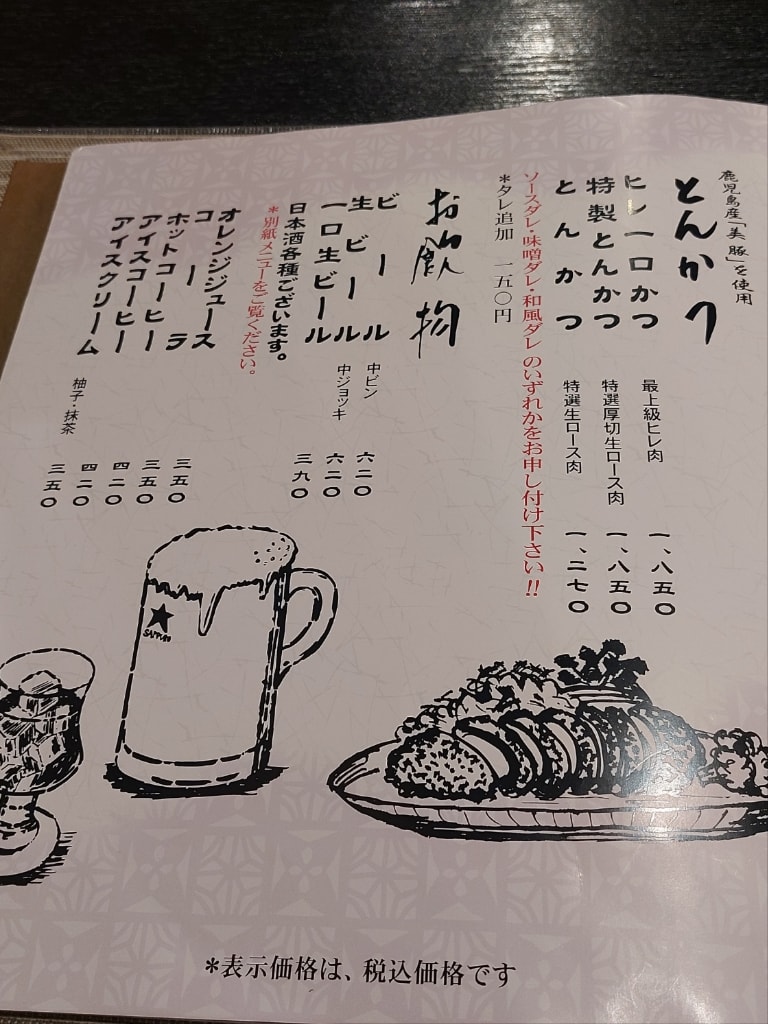 鹿児島産「美豚」を使用
とんかつ
ヒレ一口かつ 最上級ヒレ肉 一、八五〇
特製とんかつ 特選厚切生ロース肉 一、八五〇
とんかつ 特選生ロース肉 一、二七〇
ソースダレ・味噌ダレ・和風ダレのいずれかをお申し付け下さい!!
*タレ追加 一五〇円
お飲物
ビール 中ビン 六二〇
生ビール 中ジョッキ 六二〇
一口生ビール 三九〇
日本酒各種ございます。
*別紙メニューをご覧ください。
オレンジジュース 三五〇
コーラ 三五〇
ホットコーヒー 四二〇
アイスコーヒー 四二〇
アイスクリーム 柚子・抹茶 三五〇
SAPPORO
*表示価格は、税込価格です